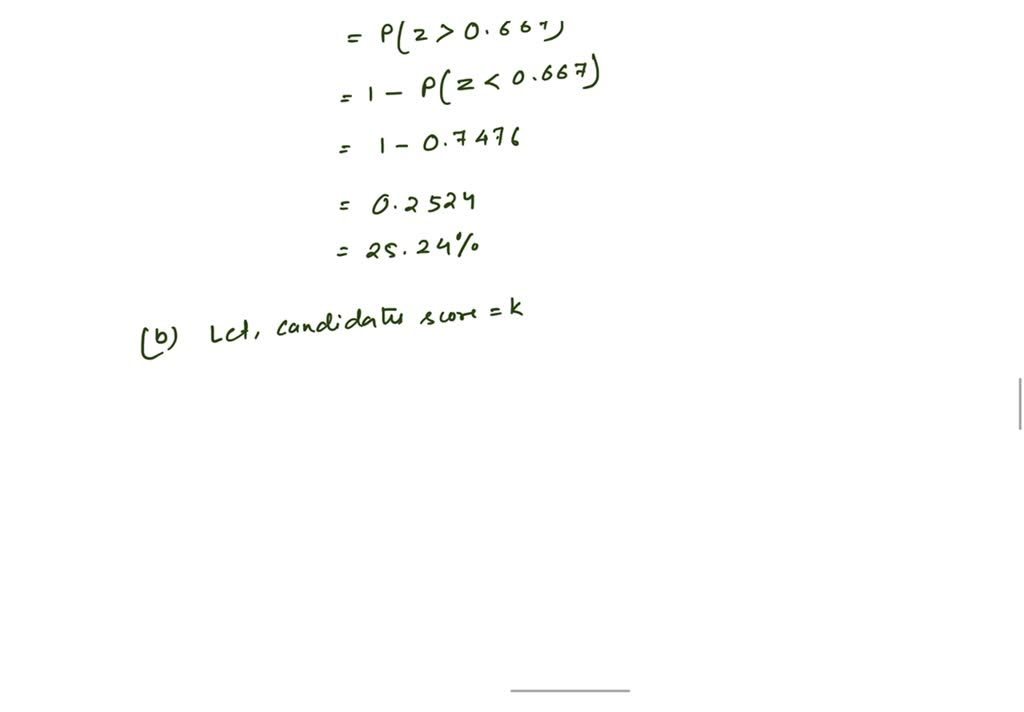 = P(z > 0.667)
= 1 - P(z < 0.667)
= 1 - 0.7476
= 0.2524
= 25.24%
(b) Let, candidates score = k